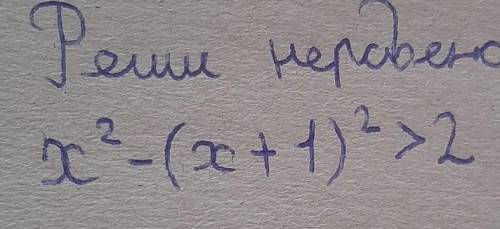 Реши неравенс
x² - (x + 1)² > 2